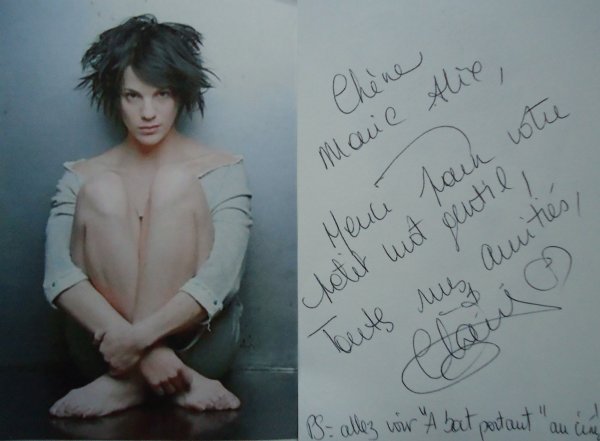 Chère
Marie Alix,
Merci pour votre
petit mot gentil,
Toutes mes amitiés,
Claire
PS: allez voir "A bout portant" au ciné!